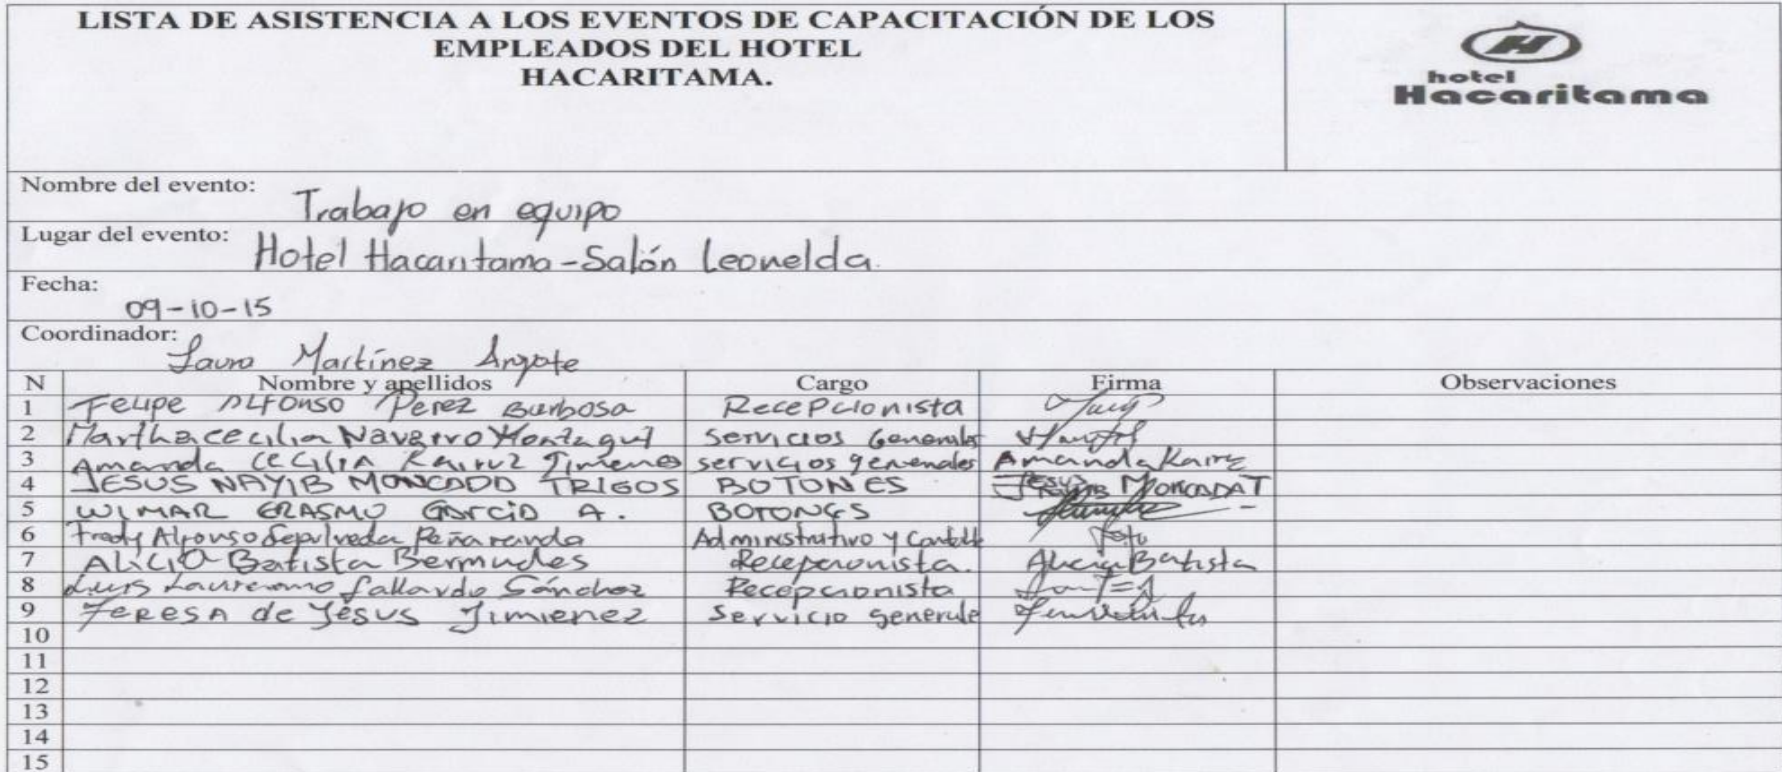 LISTA DE ASISTENCIA A LOS EVENTOS DE CAPACITACIÓN DE LOS
EMPLEADOS DEL HOTEL
HACARITAMA.
H
hotel
Hacaritama
Nombre del evento: Trabajo en equipo
Lugar del evento: Hotel Hacaritama - Salón Leonelda.
Fecha: 09-10-15
Coordinador: Laura Martínez
N Nombre y apellidos Cargo Firma Observaciones
1 Felipe Alfonso Perez Barbosa Recepcionista
2 Martha cecilia Navarro servicios Generales
3 Amanda CECILIA servicios generales Amanda
4 JESUS NAYIB MONCADA TRIGOS BOTONES Jesus MONCADA T
5 WIMAR ERASMO GARCIA A. BOTONES
6 Fredy Alfonso Sepulveda Peñaranda Administrativo y
7 Alicia Batista Bermudes Recepcionista. Alicia Batista
8 Luis Laureano Gallardo Sánchez Recepcionista
9 TERESA de Jesus Jimienez Servicio generale
10
11
12
13
14
15